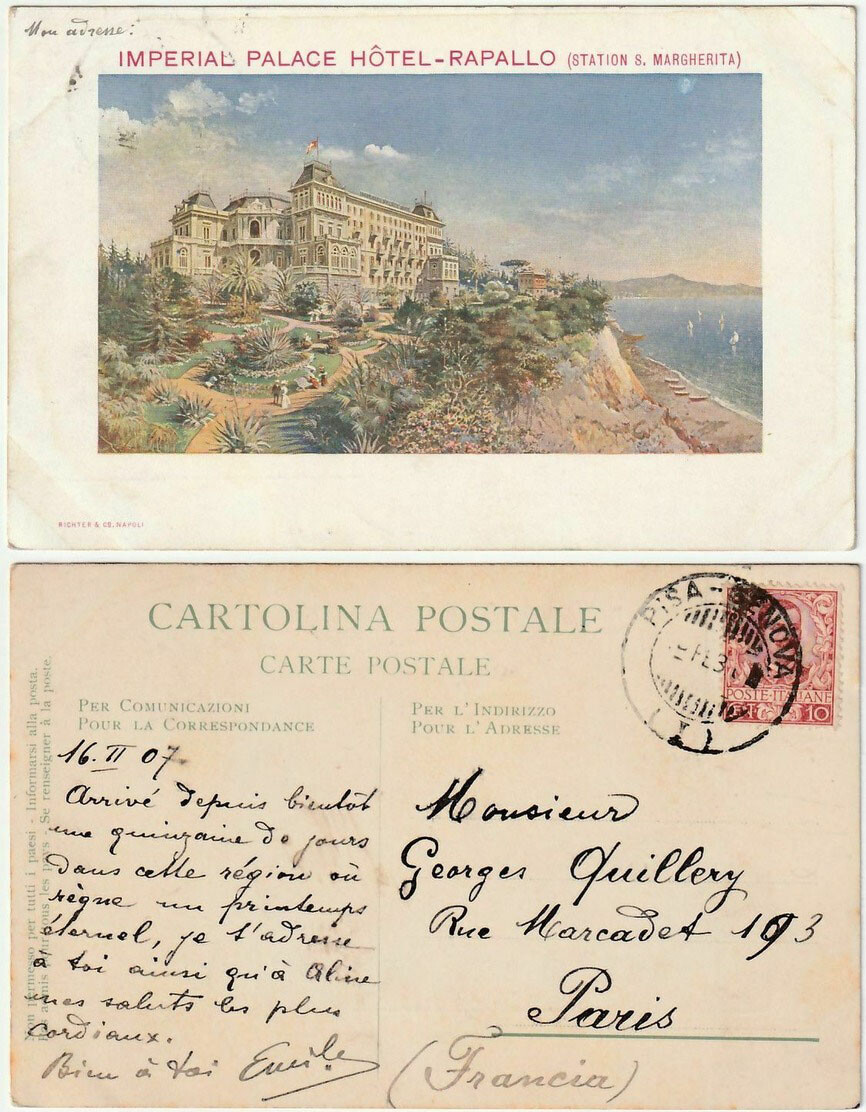 Mon adresse:
IMPERIAL PALACE HÔTEL-RAPALLO (STATION S. MARGHERITA)
RICHTER & CO, NAPOLI
CARTOLINA POSTALE
CARTE POSTALE
PER COMUNICAZIONI
POUR LA CORRESPONDANCE
PER L'INDIRIZZO
POUR L'ADRESSE
Non permesso per tutti i paesi - Informarsi alla posta.
Pas admis pour tous les pays - Se renseigner à la poste.
PISA-GENOVA
POSTE-ITALIANE
10
16. II 07.
Arrivé depuis bientôt
une quinzaine de jours
dans cette région où
règne un printemps
éternel, je t'adresse
à toi ainsi qu'à Aline
mes saluts les plus
cordiaux.
Bien à toi Emile
Monsieur
Georges Quillery
Rue Marcadet 193
Paris
(Francia)